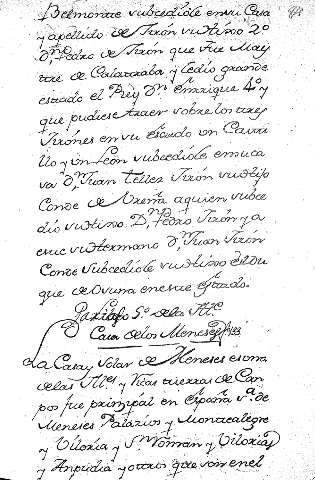 Belmonte subcediole en su Casa
y apellido de Jirón su hijo 2º
Dn. Pedro de Jirón que fue Maes
tre de Calatraba y le dio grande
estado el Rey Dn. Enrrique 4º y
que pudiese traer sobre los tres
Jirónes en su escudo un Casti
llo y un León subcediole en su ca
sa Dn. Juan Tellez Jirón su hijo
Conde de Ureña a quien subce
dio su hijo Dn. Pedro Jirón y a
ese su hermano Dn. Juan Jirón
Conde Subcediole su hijo el Du
que de Osuna en ese estado.
5º de las
Casa de los Meneses
La Casa y Solar de Meneses es una
de las y tierras de Can
pos fue prinzipal en España
Meneses Palazios y Montealegre
y Viloria y Sn. Roman y Vilorias
y Anpudia y otros que son en el